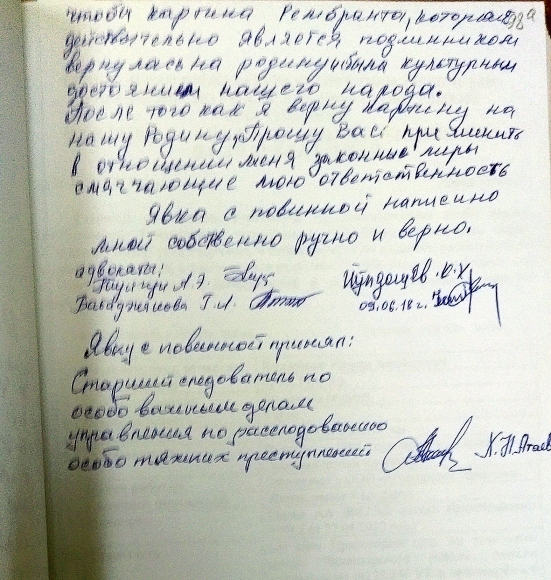 чтобы картина Рембранта, которая
действительно является подлинником
вернулась на родину и была культурным
достоянием нашего народа.
После того как я верну картину на
нашу Родину, Прошу Вас применить
в отношении меня законные меры
смягчающие мою ответственность
Явка с повинной написино
мной собственно ручно и верно.
адвокаты:
А.Э.
Бабаджанова Г.А.
Юлдашев
09.06.18 г.
Явку с повинной принял:
Старший следователь по
особо важным делам
управления по расследованию
особо тяжких преступлений К.Н. Атаев